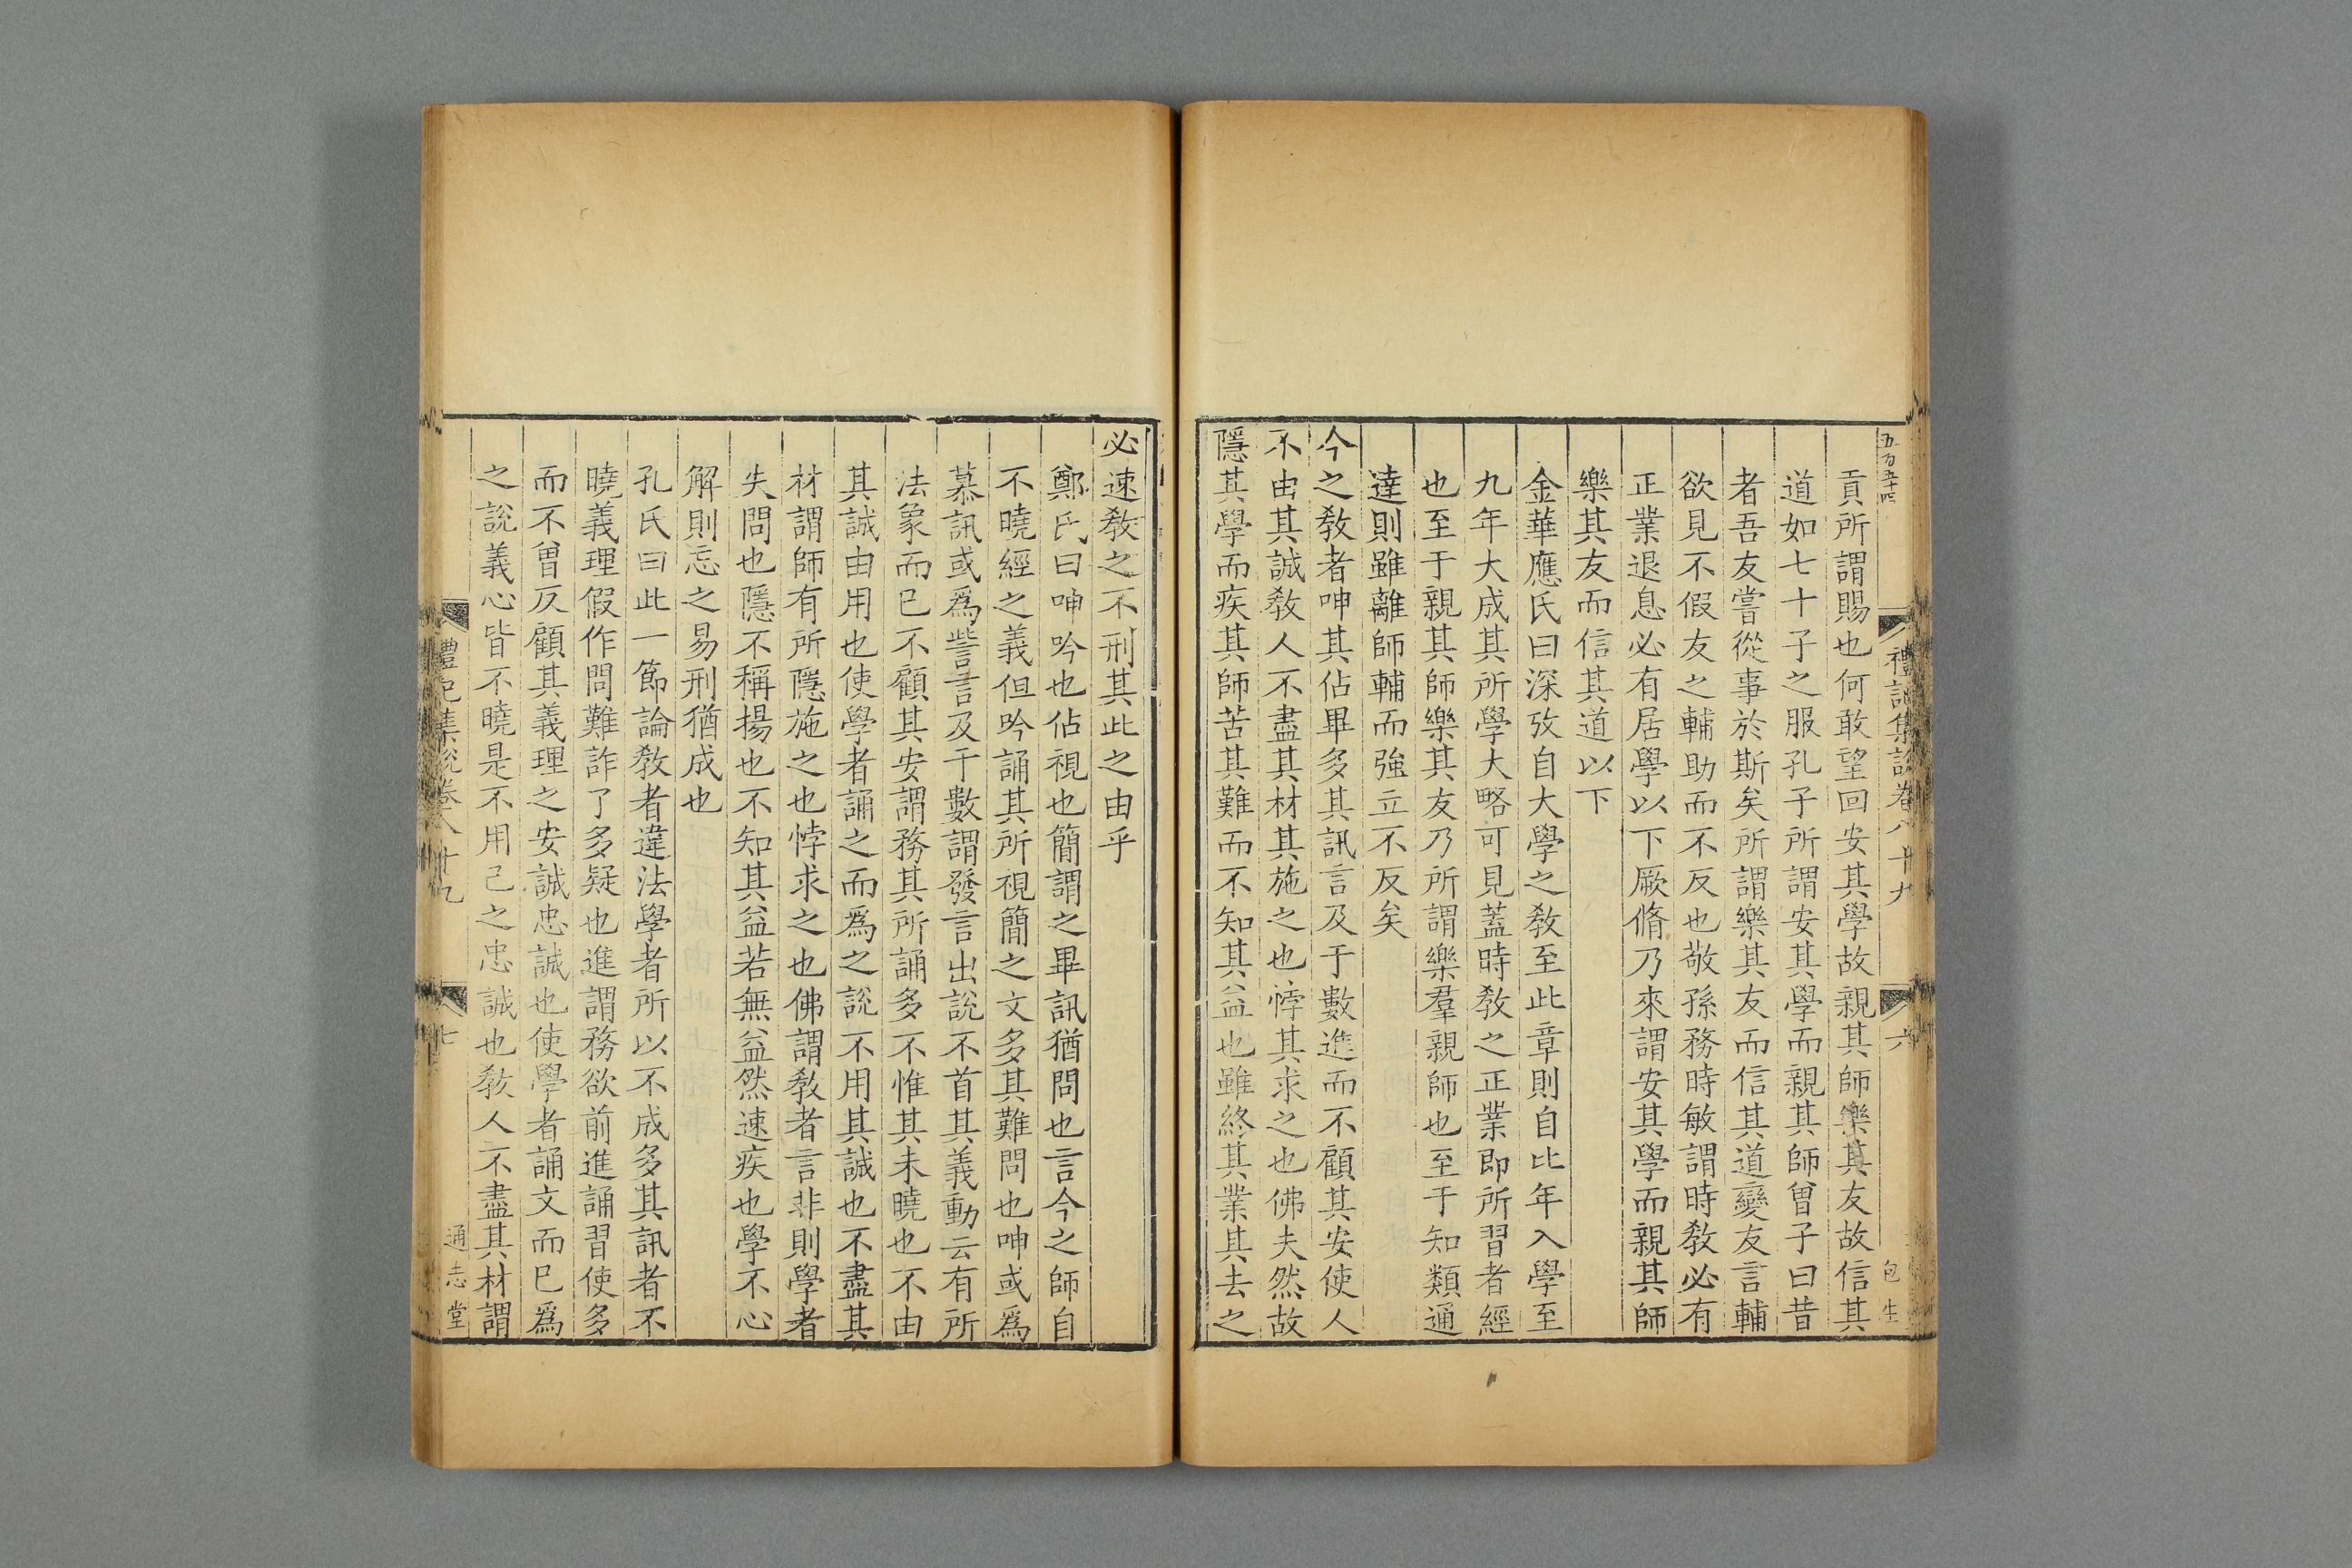 五百五十四
禮記集說卷八十九
六
包生
貢所謂賜也何敢望回安其學故親其師樂其友故信其
道如七十子之服孔子所謂安其學而親其師曾子曰昔
者吾友嘗從事於斯矣所謂樂其友而信其道變友言輔
欲見不假友之輔助而不反也敬孫務時敏謂時敎必有
正業退息必有居學以下厥脩乃來謂安其學而親其師
樂其友而信其道以下
金華應氏曰深攷自大學之敎至此章則自比年入學至
九年大成其所學大略可見蓋時敎之正業即所習者經
也至于親其師樂其友乃所謂樂羣親師也至于知類通
達則雖離師輔而強立不反矣
今之敎者呻其佔畢多其訊言及于數進而不顧其安使人
不由其誠敎人不盡其材其施之也悖其求之也佛夫然故
隱其學而疾其師苦其難而不知其益也雖終其業其去之
必速敎之不刑其此之由乎
鄭氏曰呻吟也佔視也簡謂之畢訊猶問也言今之師自
不曉經之義但吟誦其所視簡之文多其難問也呻或爲
慕訊或爲訾言及于數謂發言出說不首其義動云有所
法象而已不顧其安謂務其所誦多不惟其未曉也不由
其誠由用也使學者誦之而爲之說不用其誠也不盡其
材謂師有所隱施之也悖求之也佛謂敎者言非則學者
失問也隱不稱揚也不知其益若無益然速疾也學不心
解則忘之易刑猶成也
孔氏曰此一節論敎者違法學者所以不成多其訊者不
曉義理假作問難詐了多疑也進謂務欲前進誦習使多
而不曾反顧其義理之安誠忠誠也使學者誦文而已爲
之說義心皆不曉是不用己之忠誠也敎人不盡其材謂
禮記集說卷八十九
七
通志堂